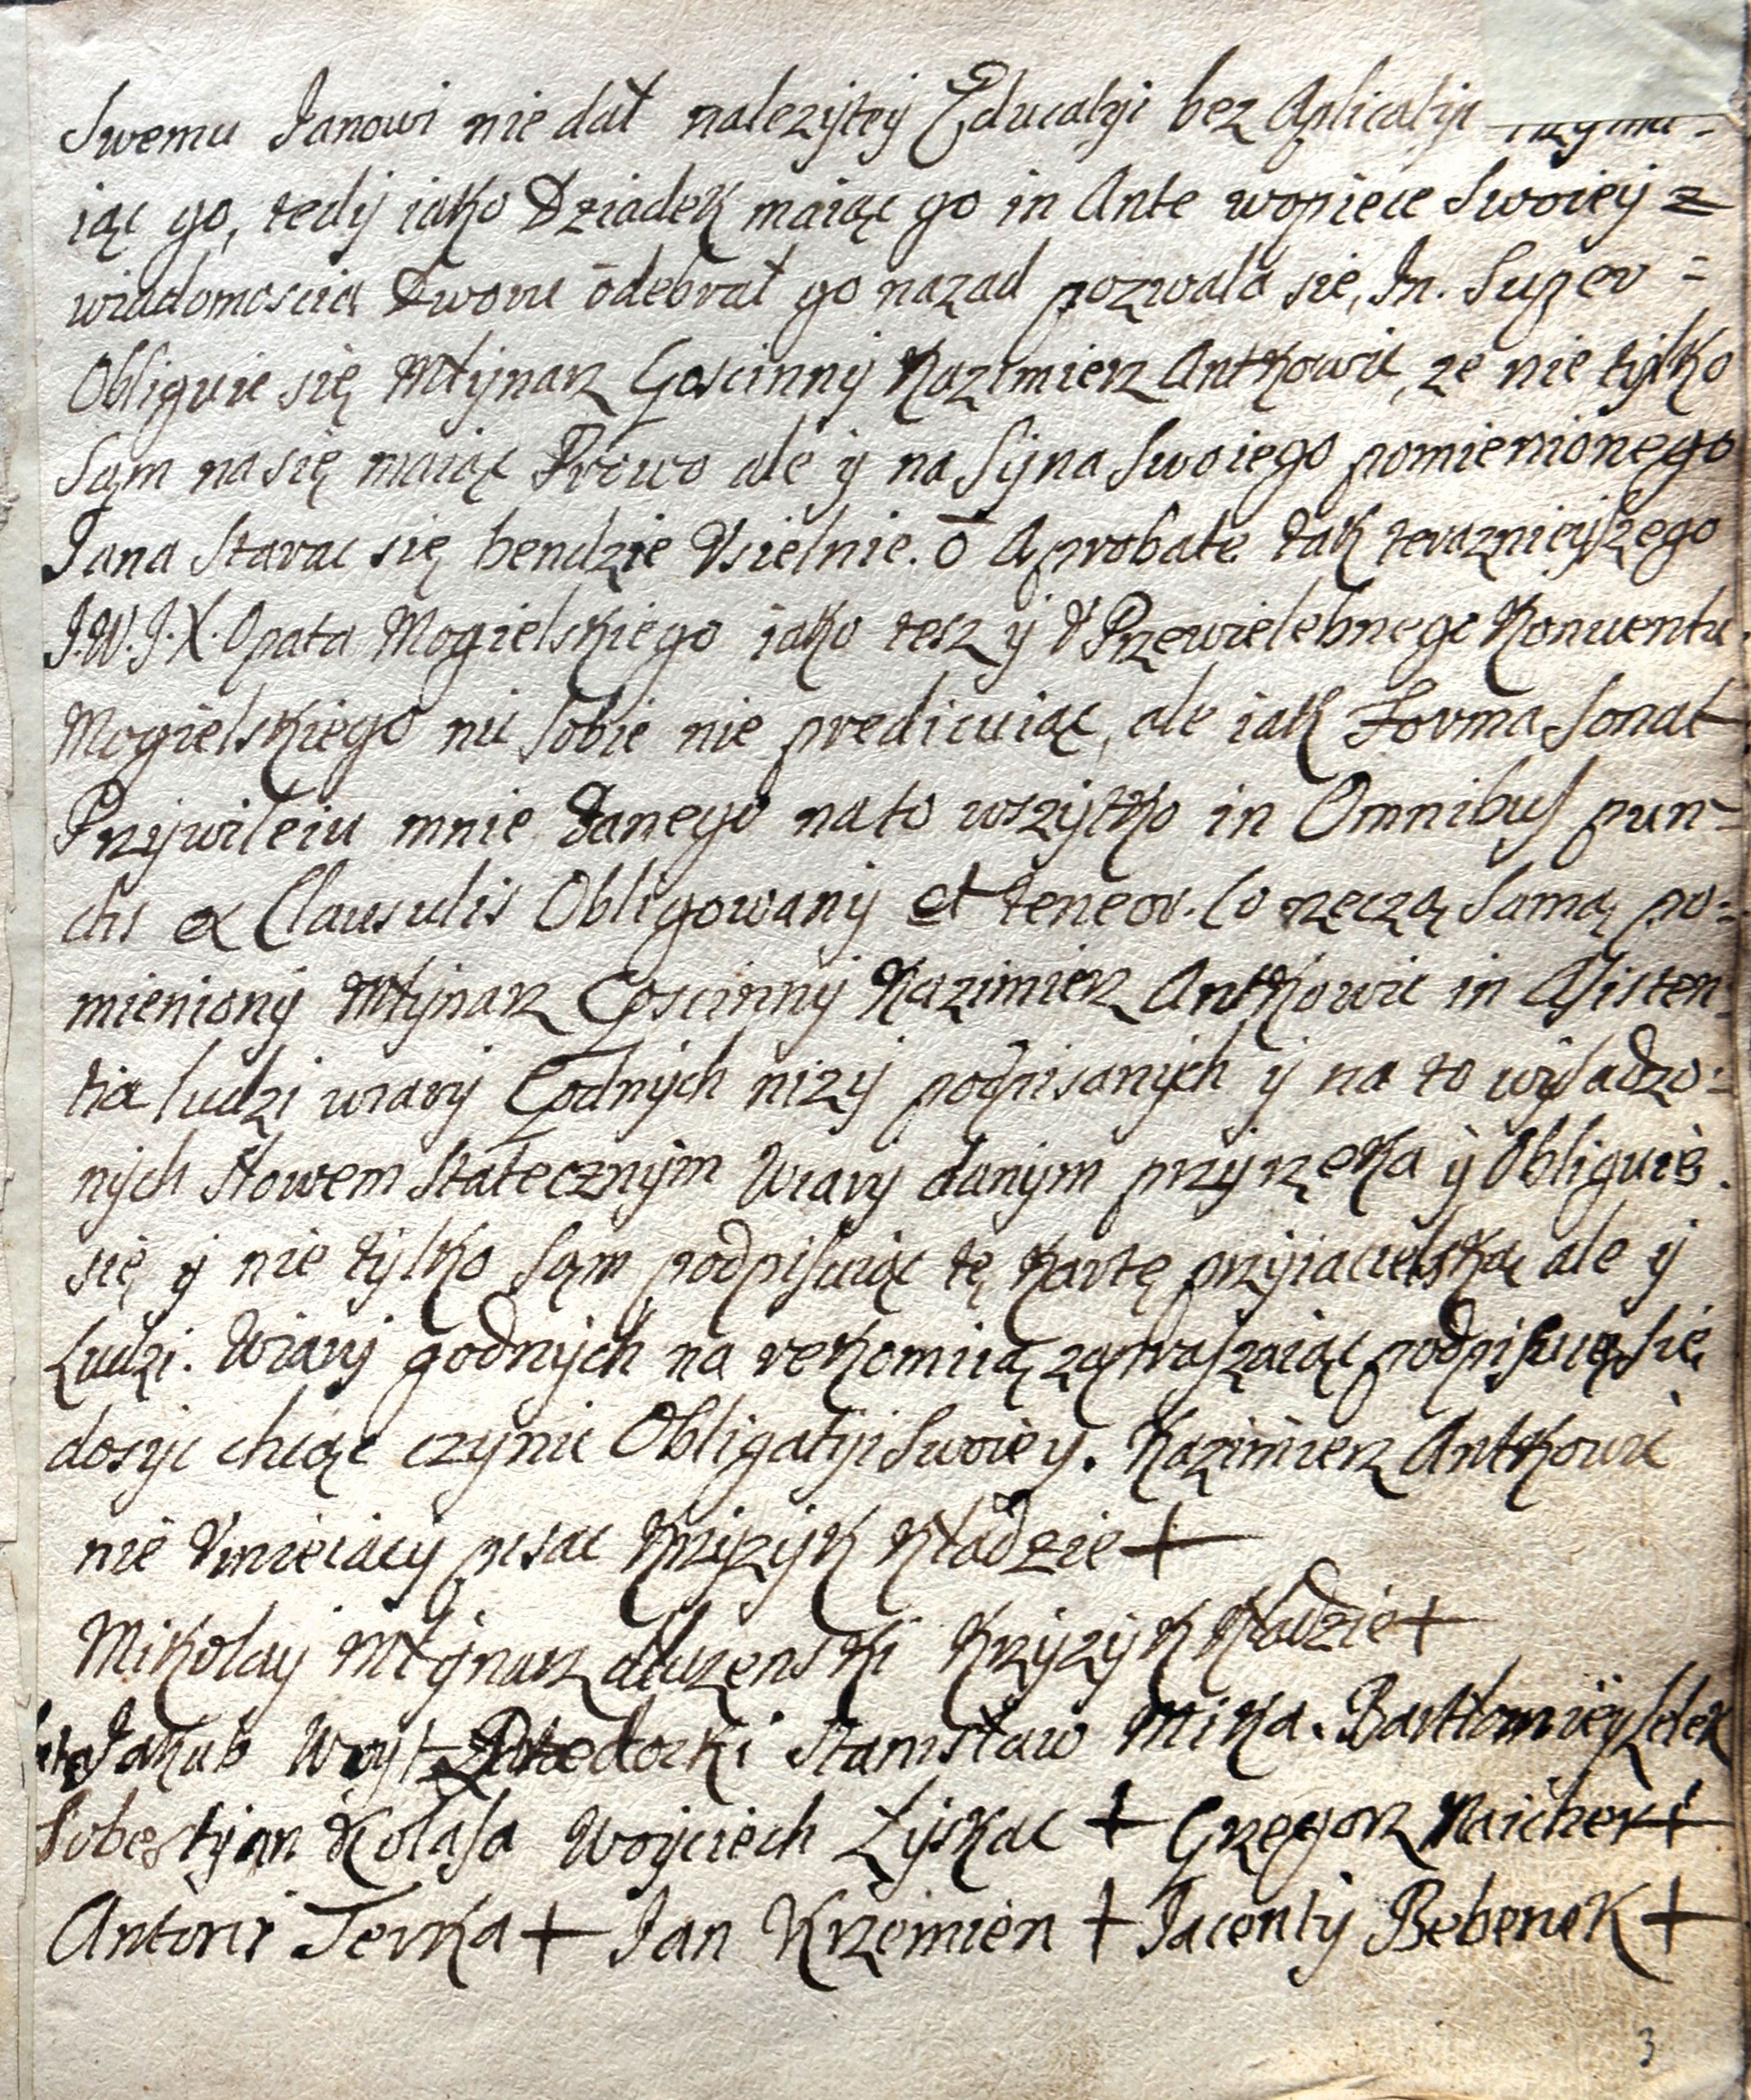 Swemu Janowi nie dał nalezÿteÿ Educatÿi bez Aplicatÿi
iąc go, tedÿ iako Dziadek maiąc go in Ante wopiece Swoieÿ z
wiadomoscią Dworu odebrał go nazad pozwala się, In. Super =
Obliguie się Młÿnarz Goscinnÿ Kazimierz Antkowic, ze nie tÿlko
Sąm na się maiąc Prawo ale ÿ na Sÿna Swoiego pomienionego
Jana Starac się bendzie Vsielnie. o Aprobate tak teraznieÿszego
J.W.J.X. Opata Mogielskiego iako tesz ÿ v Przewielebnego Konwentu
Mogielskiego nic sobie nie predicuiąc, ale iak Forma Sonat
Przÿwileiu mnie Danego na to wszÿtko in Omnibus pun=
ctis & Clausulis Obligowanÿ et teneor. Co rzeczą Samą po=
mienionÿ Młÿnarz Goscinnÿ Kazimierz Antkowic in Assisten=
tia ludzi wiarÿ Godnÿch nizÿ podpisanÿch ÿ na to wÿsadzo=
nÿch słowem Statecznÿm Wiarÿ danÿm przÿrzeka ÿ Obliguie
się ÿ nie tÿlko Sąm podpisuiąc tę Kartę przÿiacielską ale ÿ
Ludzi. Wiarÿ godnÿch na rekomiią zapraszaiąc podpisuię się
dosÿc chcąc czÿnic Obligatÿi Swoieÿ. Kazimierz Antkowic
nie Vmieiącÿ pisac Krzÿzÿk Kładzie +
Mikolaÿ Młÿnarz Krzÿzÿk Kładzie +
Jakub Woÿt Stanisław Mika. Bartłomieÿ
Sobestÿan Kolasa Woÿciech Łÿskac + Grzegorz Maicher +
Antoni Terka + Jan Krzemien + Jacentÿ Bebenek +
3